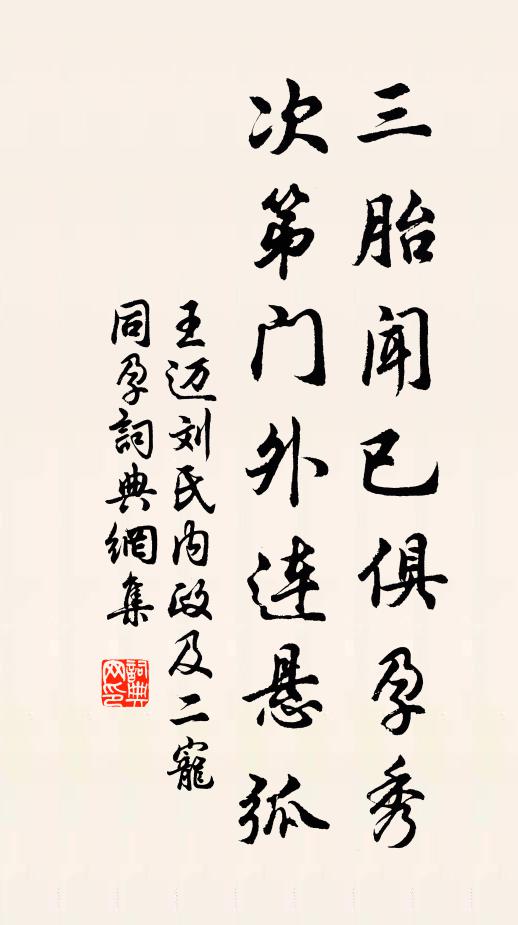 三胎闻已俱孕秀
次第门外连悬弧
王迈刘氏内政及二寵
同孕詞典網集
詞典网印